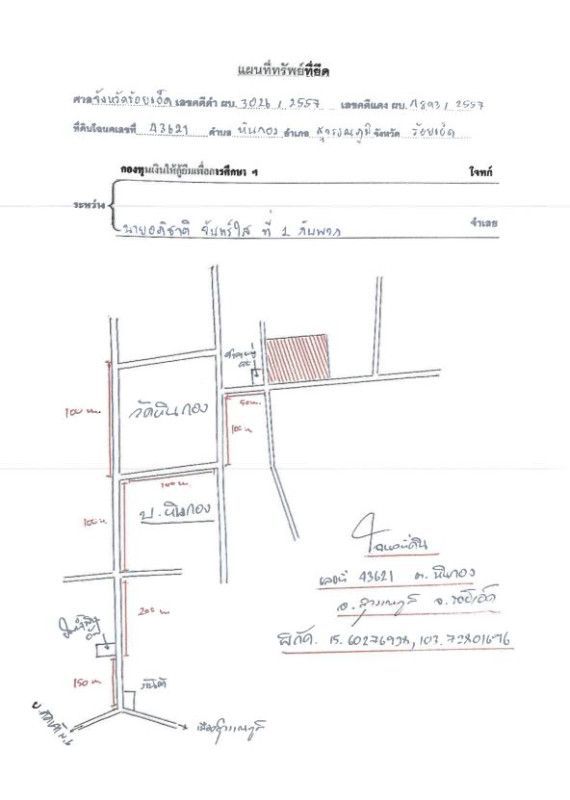 แผนที่ทรัพย์ที่ยึด
ศาลจังหวัดร้อยเอ็ด เลขคดีดำ ผบ. 3026 / 2557 เลขคดีแดง ผบ. 1893 / 2557
ที่ดินโฉนดเลขที่ 43621 ตำบล หินกอง อำเภอ สุวรรณภูมิ จังหวัด ร้อยเอ็ด
กองทุนเงินให้กู้ยืมเพื่อการศึกษา ฯ โจทก์
ระหว่าง
นายอภิชาติ จันทร์ใส ที่ 1 กับพวก จำเลย
100 m.
วัดหินกอง
50 m.
100 m
100 m
100 m
บ.หินกอง
โฉนดที่ดิน
เลขที่ 43621 ต.หินกอง
อ.สุวรรณภูมิ จ.ร้อยเอ็ด
พิกัด. 15.6027693
200 m
150 m
เมืองสุวรรณภูมิ